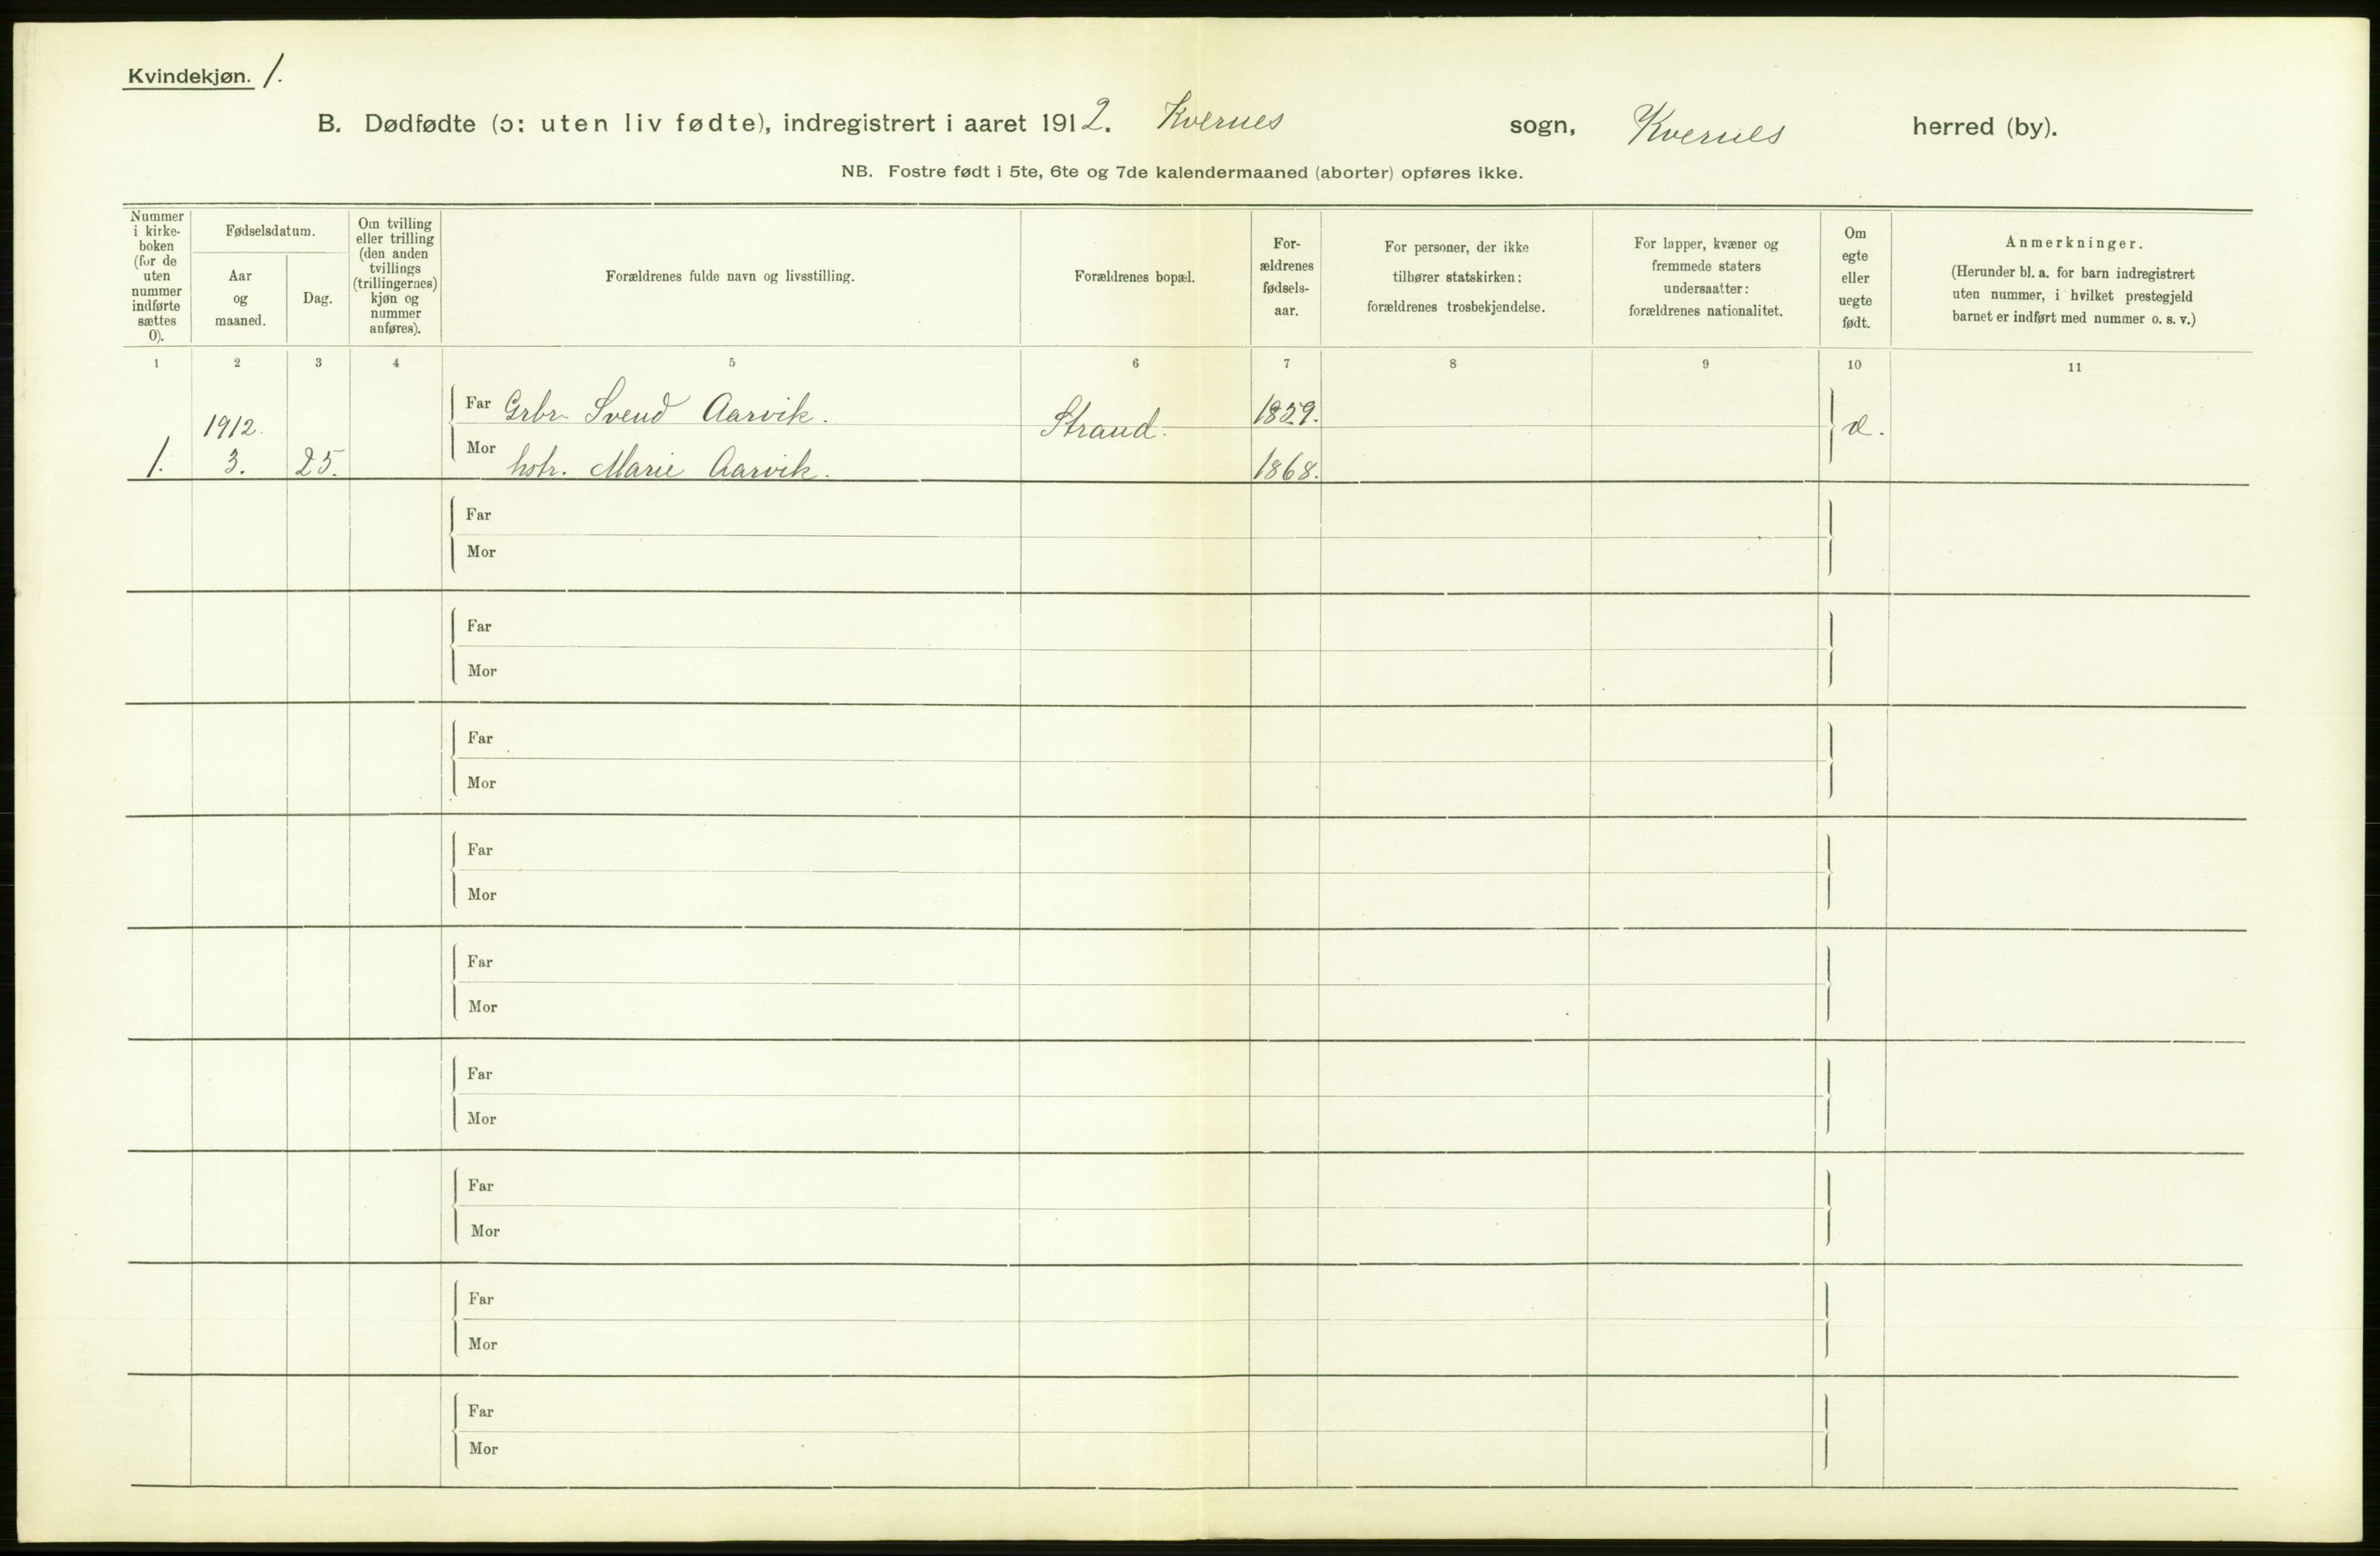 Kvindekjøn. 1.
B. Dødfødte (ɔ: uten liv fødte), indregistrert i aaret 1912. Kvernes sogn, Kvernes herred (by).
NB. Fostre født i 5te, 6te og 7de kalendermaaned (aborter) opføres ikke.
Nummer
i kirke-
boken
(for de
uten
nummer
indførte
sættes
0).
Fødselsdatum.
Aar
og
maaned.
Dag.
Om tvilling
eller trilling
(den anden
tvillings
(trillingernes)
kjøn og
nummer
anføres).
Forældrenes fulde navn og livsstilling.
Forældrenes bopæl.
For-
ældrenes
fødsels-
aar.
For personer, der ikke
tilhører statskirken:
forældrenes trosbekjendelse.
For lapper, kvæner og
fremmede staters
undersaatter:
forældrenes nationalitet.
Om
egte
eller
uegte
født.
Anmerkninger.
(Herunder bl. a. for barn indregistrert
uten nummer, i hvilket prestegjeld
barnet er indført med nummer o. s. v.)
1 2 3 4 5 6 7 8 9 10 11
1912. Far Grbr. Svend Aarvik. Strand. 1859. æ.
1. 3. 25. Mor hstr. Marie Aarvik. 1868.
Far
Mor
Far
Mor
Far
Mor
Far
Mor
Far
Mor
Far
Mor
Far
Mor
Far
Mor
Far
Mor